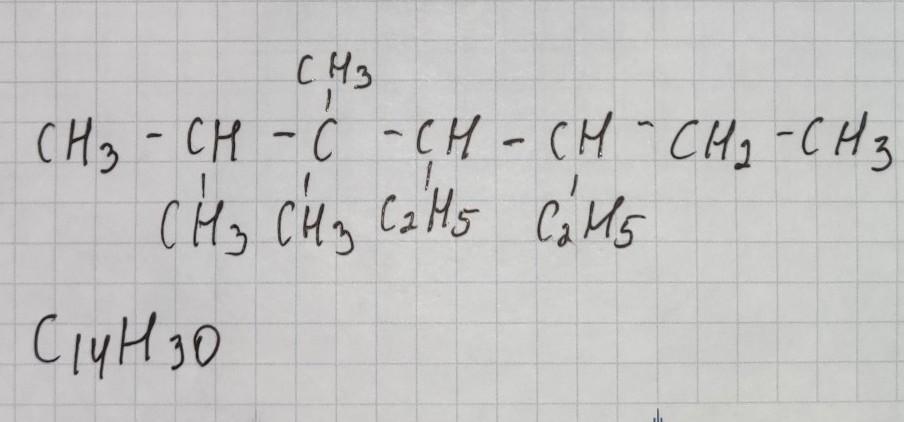 CH3
CH3 - CH - C - CH - CH - CH2 - CH3
CH3 CH3 C2H5 C2H5
C14H30